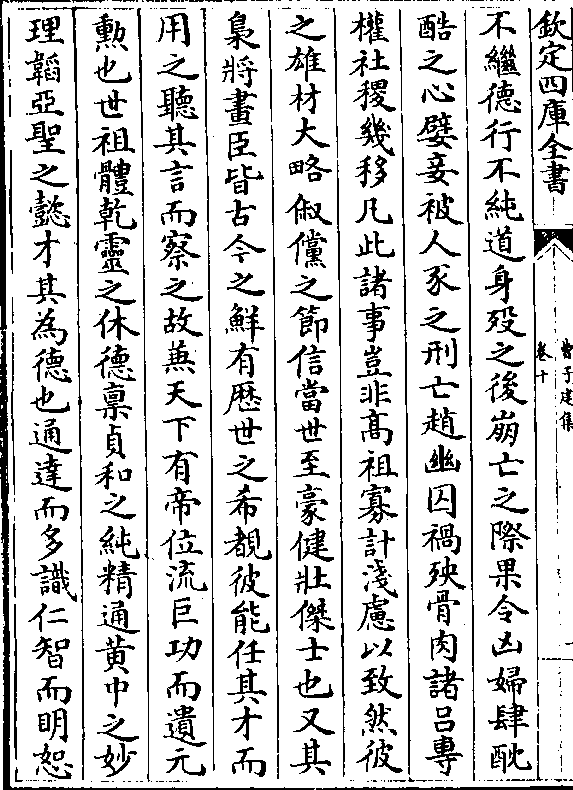 欽定四庫全書
曹子建集
卷十
不繼德行不純道身殁之後崩亡之際果令凶婦肆酖
酷之心嬖妾被人豕之刑亡趙幽囚禍殃骨肉諸吕專
權社稷幾移凡此諸事豈非髙祖寡計淺慮以致然彼
之雄材大略俶儻之節信當世至豪健壯傑士也又其
梟將畫臣皆古今之鮮有歴世之希覩彼能任其才而
用之聽其言而察之故兼天下有帝位流巨功而遺元
勲也世祖體乾靈之休德禀貞和之純精通黄中之妙
理韜亞聖之懿才其為德也通達而多識仁智而明恕